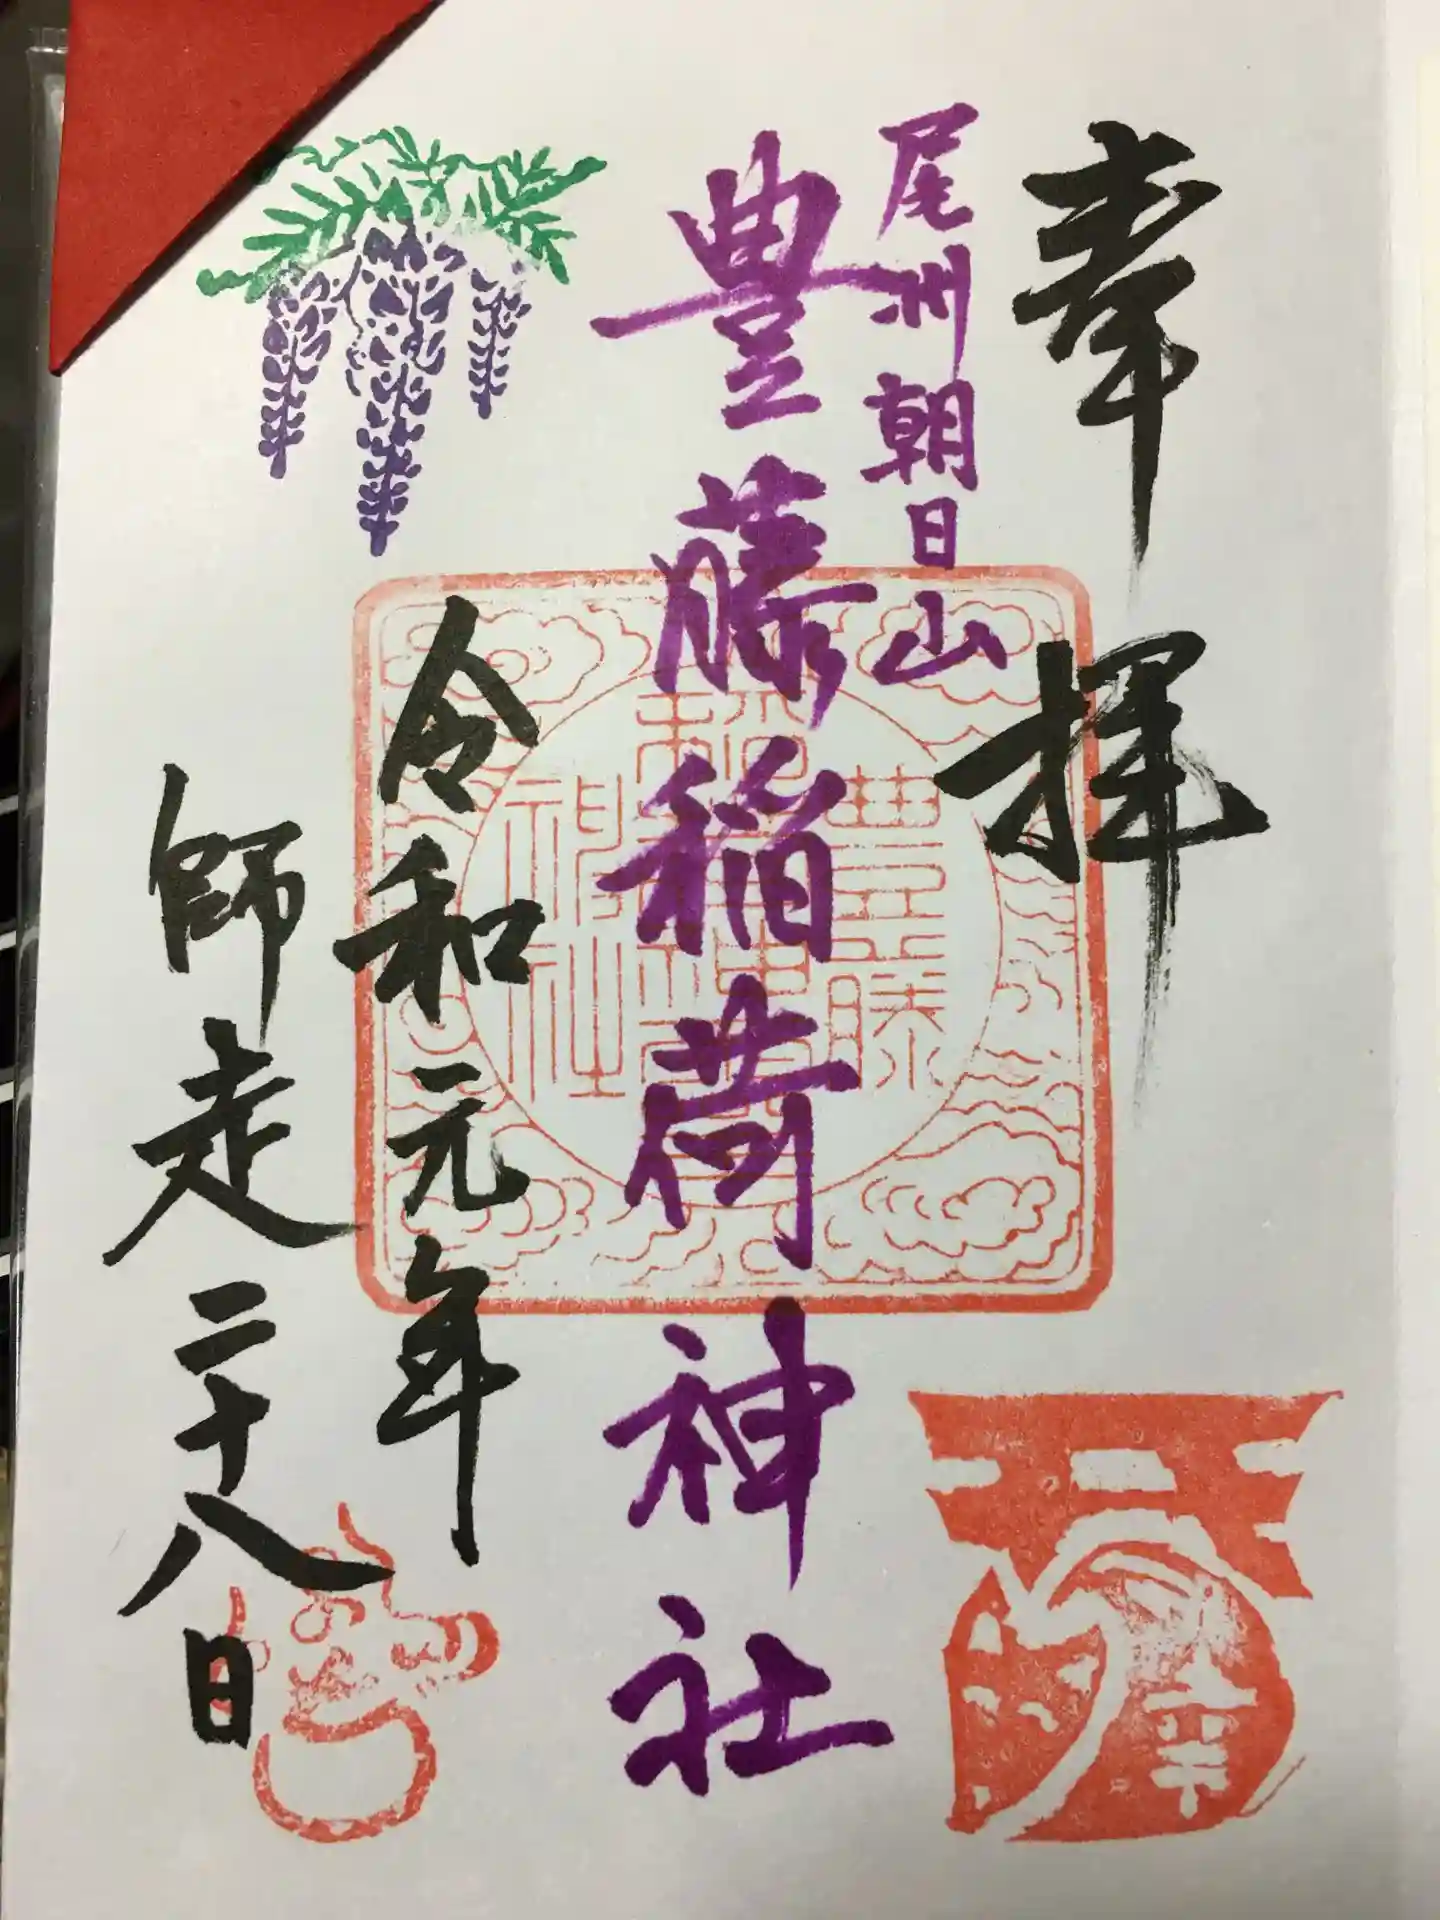 奉拝
尾州朝日山
豊藤稲荷神社
令和元年
師走二十八日
豊藤
稲荷神社